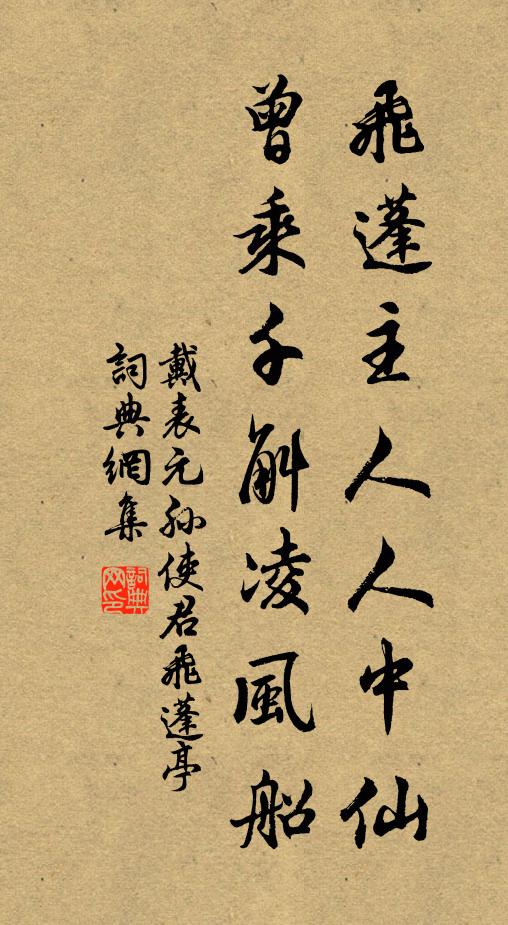 飛蓬主人人中仙
曾乘千斛凌風船
戴表元孫使君飛蓬亭
詞典網集
詞典網印